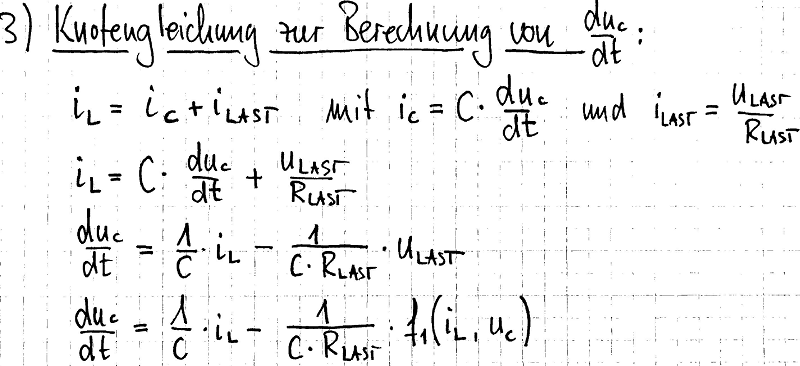 3) Knotengleichung zur Berechnung von du_c/dt :
i_L = i_C + i_LAST mit i_C = C · du_c/dt und i_LAST = u_LAST/R_LAST
i_L = C · du_c/dt + u_LAST/R_LAST
du_c/dt = 1/C · i_L − 1/(C · R_LAST) · u_LAST
du_c/dt = 1/C · i_L − 1/(C · R_LAST) · f_1(i_L, u_c)